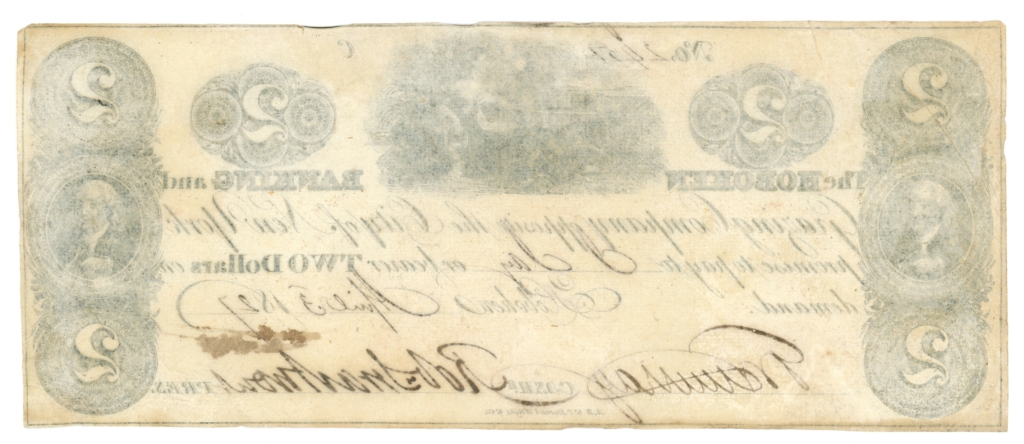 No. 2457 C
2 2 2 2
The HOBOKEN BANKING and
Grazing Company opposite the City of New York
promise to pay to J. Jay or bearer TWO Dollars on
demand. Hoboken April 3 1827
CASHR. PRES.
2 2